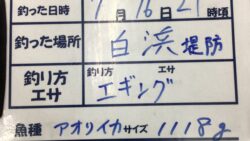 釣った日時 7月16日21時頃
釣った場所 白浜堤防
釣り方 エサ 釣り方 エサ
エギング
魚種 アオリイカ サイズ 1118g